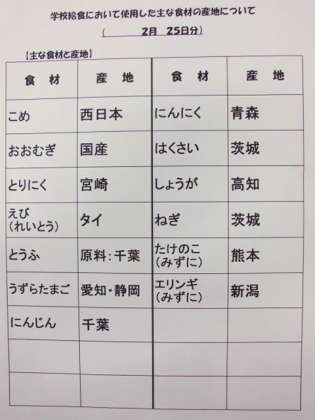 学校給食において使用した主な食材の産地について
( 2月 25日分)
【主な食材と産地】
食 材 産 地 食 材 産 地
こめ 西日本 にんにく 青森
おおむぎ 国産 はくさい 茨城
とりにく 宮崎 しょうが 高知
えび
(れいとう) タイ ねぎ 茨城
とうふ 原料:千葉 たけのこ
(みずに) 熊本
うずらたまご 愛知・静岡 エリンギ
(みずに) 新潟
にんじん 千葉